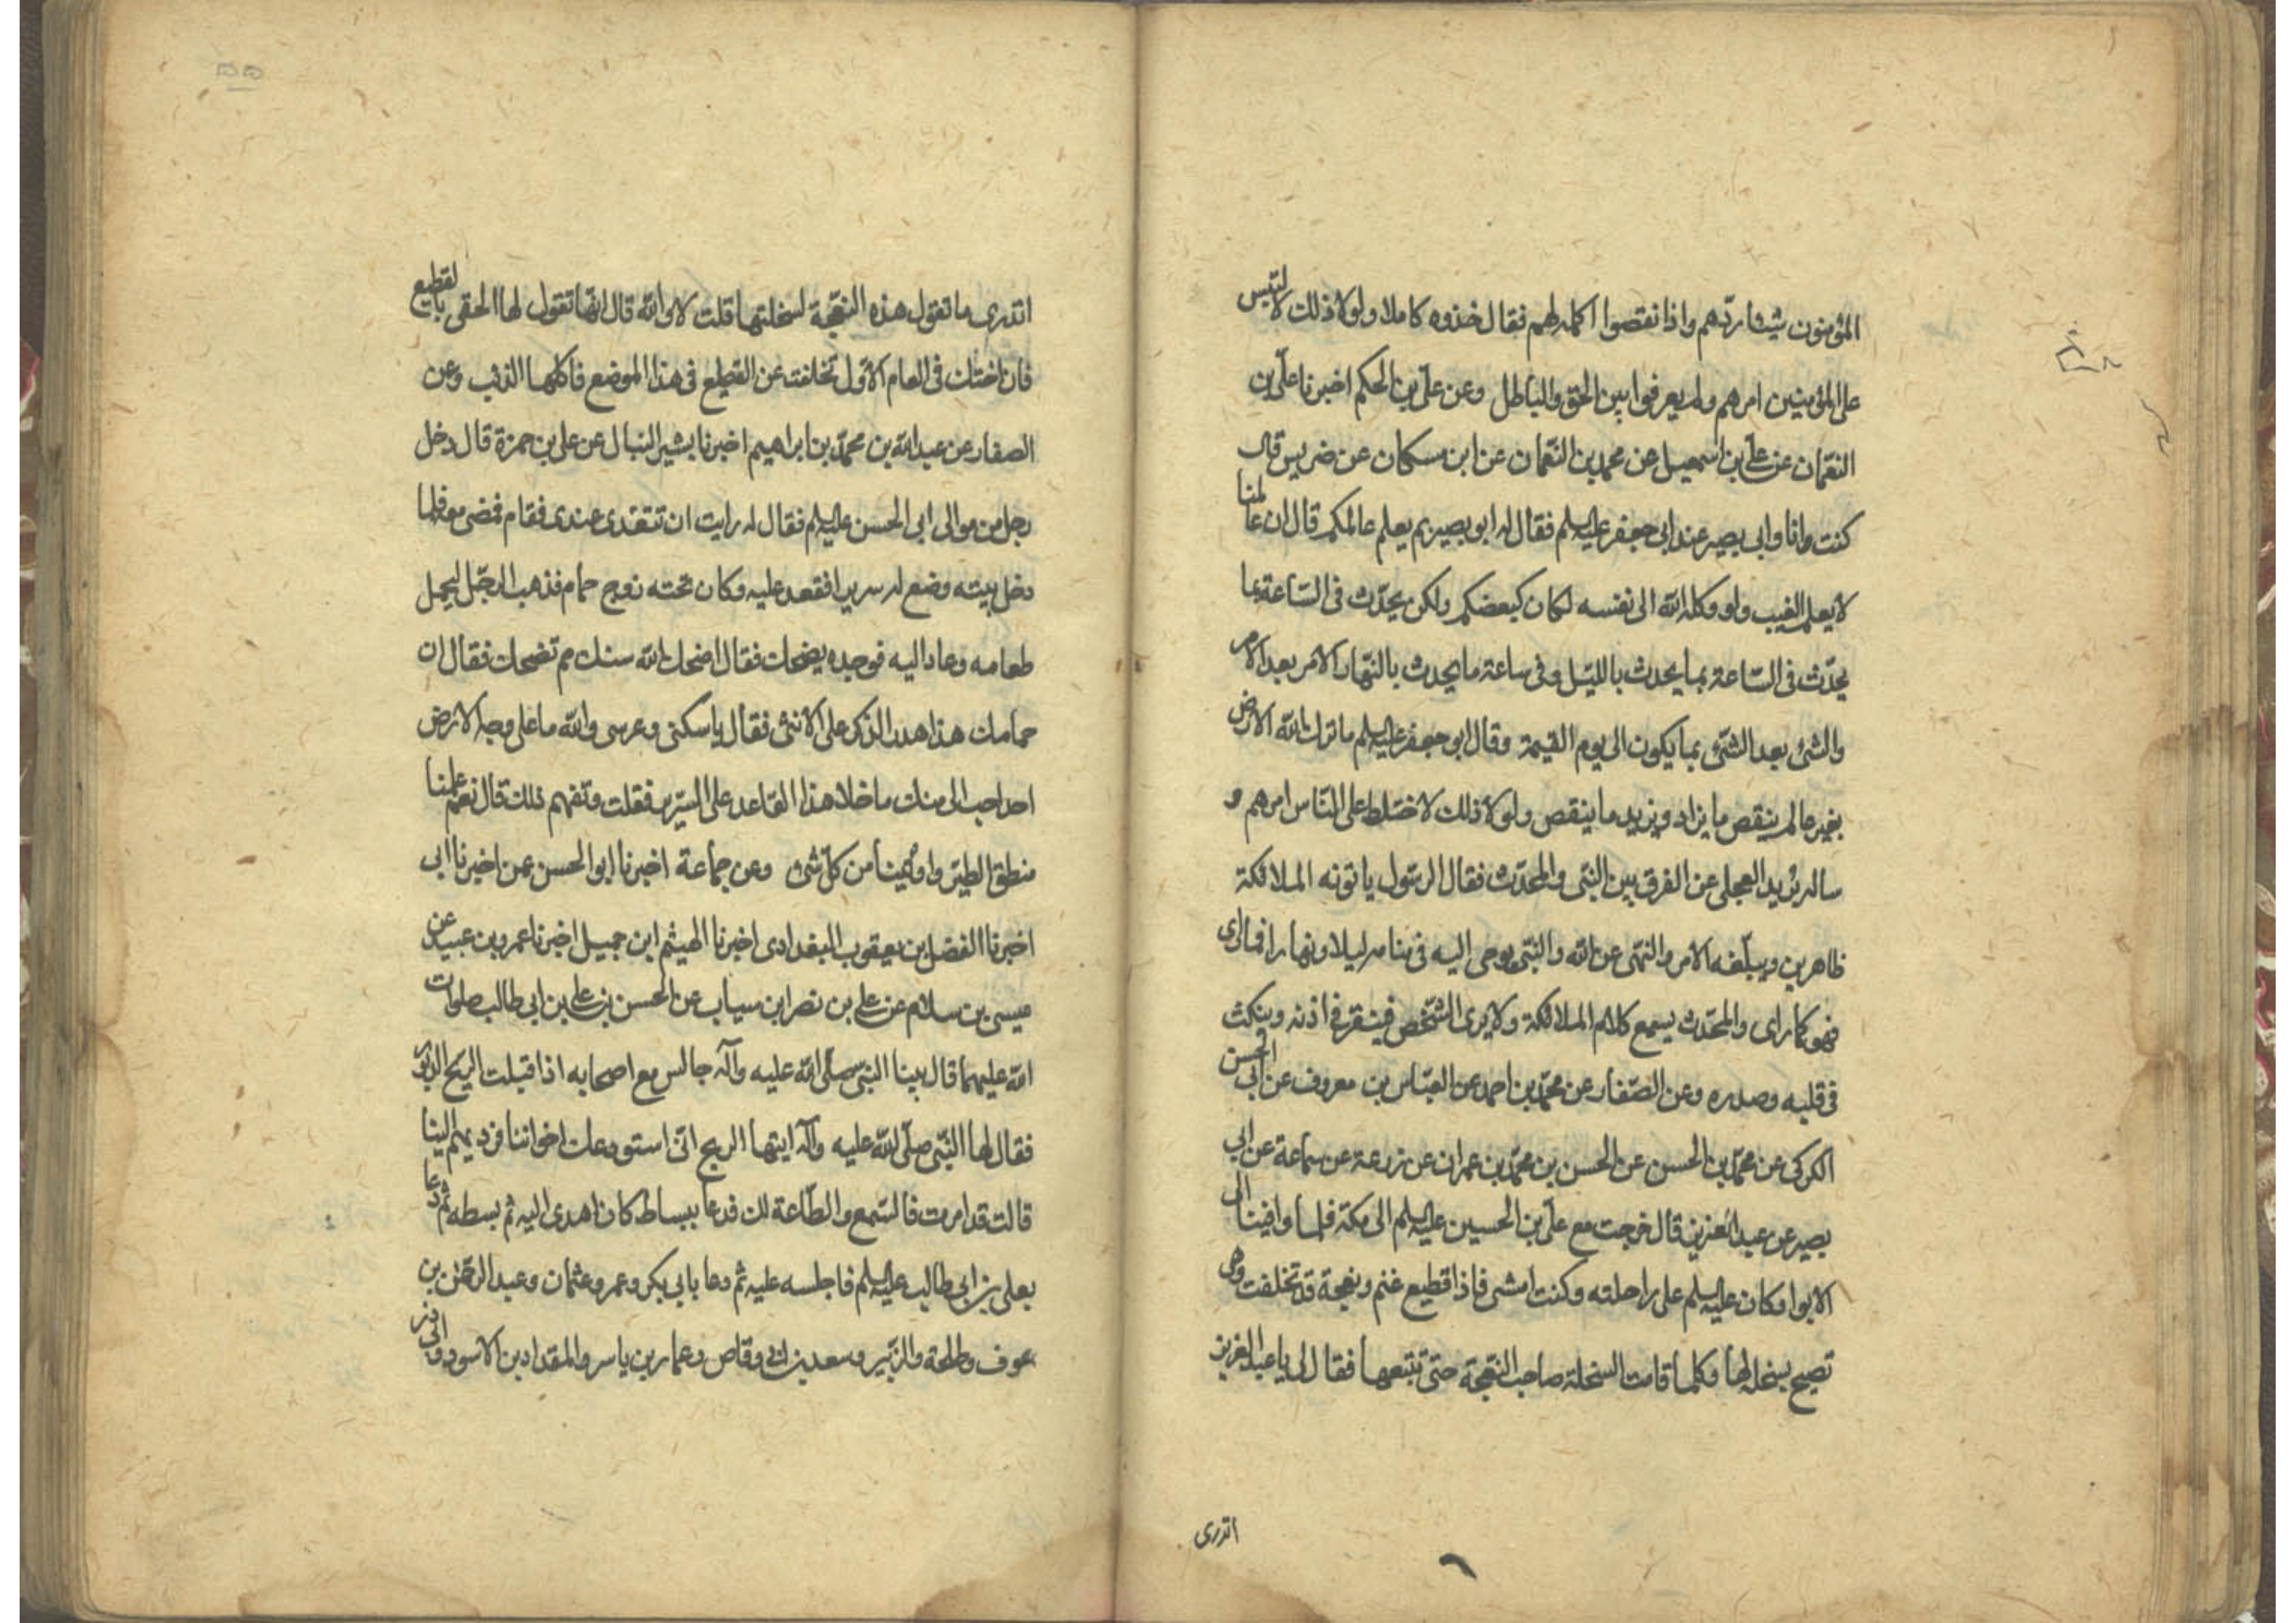 المؤمنون شيئا ردّهم واذا نقصوا اكمله لهم فقال خذوه كاملا ولولا ذلك لالتبس
على المؤمنين امرهم ولم يعرفوا بين الحق والباطل وعن علي بن الحكم اخبرنا علي بن
النعمان عن علي بن اسمعيل عن محمد بن النعمان عن ابن مسكان عن ضريس قال
كنت وانا وابي بصير عند ابي جعفر عليه السلم فقال له ابو بصير بم يعلم عالمكم قال ان عالمنا
لا يعلم الغيب ولو وكله الله الى نفسه لكان كبعضكم ولكن يحدّث في السّاعة بما
يحدّث في السّاعة بما يحدث بالليل وفي ساعة ما يحدث بالنّهار الامر بعد الامر
والشئ بعد الشئ بما يكون الى يوم القيمة وقال ابو جعفر عليه السلم ما ترك الله الارض
بغير عالم ينقص ما يزاد ويزيد ما ينقص ولولا ذلك لاختلط على النّاس امرهم و
ساله بريد العجلي عن الفرق بين النبي والمحدّث فقال الرسول ياتونه الملائكة
ظاهرين ويبلّغه الامر والنّهى عن الله والنبّي يوحى اليه في منامه ليلا ونهارا فما راى
فهو كما راى والمحدّث يسمع كلام الملائكة ولا يرى الشّخص فينقر في اذنه وينكث
في قلبه وصدره وعن الصّفار عن محمّد بن احمد عن العبّاس بن معروف عن ابي الحسن
الكركى عن محمّد بن الحسن عن الحسن بن محمّد بن عمران عن زرعة عن سماعة عن ابي
بصير عن عبد العزيز قال خرجت مع علّي بن الحسين عليه السلم الى مكة فلما وافينا الى
الابوا وكان عليه السلم على راحلته وكنت امشى فاذا قطيع غنم ونعجة قد تخلفت وهى
تصيح بسخلة لها وكلما قامت السخلة صاحب النّعجة حتى تتبعها فقال لى يا عبد العزيز
اتدرى
اتدرى ما تقول هذه النعجة لسخلتها قلت لا والله قال انّها تقول لها الحقى بالقطيع
فان اختك في العام الاوّل تخلفت عن القطيع في هذا الموضع فاكلها الذئب وعن
الصفار عن عبد الله بن محمّد بن ابراهيم اخبرنا بشير النبال عن علي بن حمزة قال دخل
رجل من موالى ابي الحسن عليه السلم فقال له رايت ان تتغدى عندى فقام فمضى معه فلما
دخل بيته وضع له سريرا فقعد عليه وكان تحته زوج حمام فذهب الرجّل ليحمل
طعامه وعاد اليه فوجده يضحك فقال اضحك الله سنك مم تضحك فقال ان
حمامك هذا هدر الذكر على الانثى فقال يا سكنى وعرسى والله ما على وجه الارض
احد احب الى منك ما خلا هذا القاعد على السّرير فقلت وتفهم ذلك قال نعم علمنا
منطق الطير واوتينا من كل شئ وعن جماعة اخبرنا ابو الحسن عمن اخبرنا ابي
اخبرنا الفضل بن يعقوب البغدادى اخبرنا الهيثم ابن جميل اخبرنا عمرو بن عبيد عن
عيسى بن سلام عن علي بن نصر ابن سياب عن الحسن بن علي بن ابي طالب صلوات
الله عليهما قال بينا النبّي صلّى الله عليه وآله جالس مع اصحابه اذا قبلت الريح الدبور
فقال لها النبّي صلّى الله عليه وآله ايتها الريح انّى استودعك اخواننا فرديهم الينا
قالت قد امرت فالسّمع والطّاعة لك فدعا ببساط كان اهدى اليه ثم بسطه ثم دعا
بعلى بن ابي طالب عليه السلم فاجلسه عليه ثم دعا بابي بكر وعمر وعثمان وعبد الرحمن بن
عوف وطلحة والزبّير وسعد بن ابي وقاص وعمار بن ياسر والمقداد بن الاسود وابي ذر